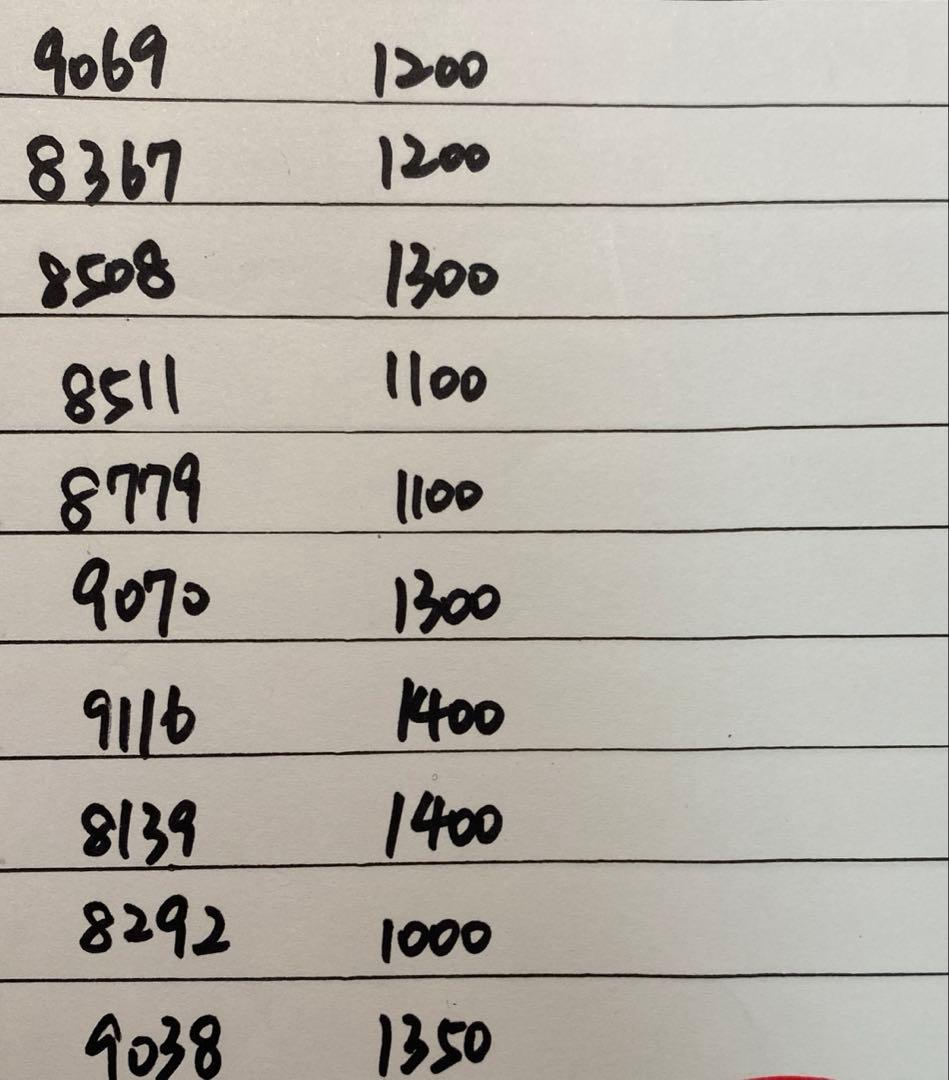 9069 1200
8367 1200
8508 1300
8511 1100
8779 1100
9070 1300
9116 1400
8139 1400
8292 1000
9038 1350